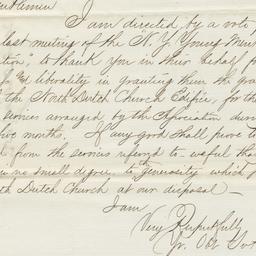 Gentlemen
I am directed by a vote
last meeting of the "N. Y. Young Men
tion", to thank you in their behalf for
liberality in granting them the
the North Dutch Church Edifice, for the
services arranged by the Association during
five months. If any good shall prove to
from the services referred to useful
in no small degree, to the generosity which
Dutch Church at our disposal
I am
Very Respectfully
Yr. Obt